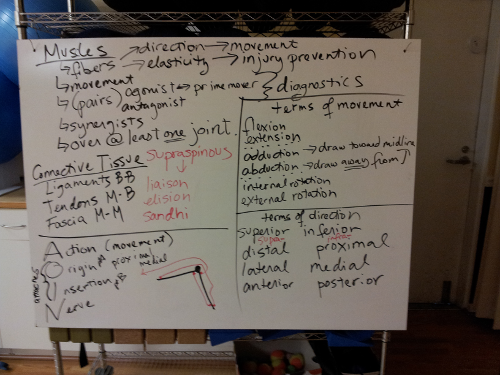 Musles → direction → movement
↳ fibers → elasticity → injury prevention
↳ movement
↳ (pairs) agonist ↔ prime mover
antagonist
} diagnostics
↳ synergists
↳ over @ least one joint.
Connective Tissue
Ligaments B-B
Tendons M-B
Fascia M-M
supraspinous
↓
liaison
elision
sandhi
Action (movement)
Origin proximal
medial
Insertion
Nerve
terms of movement
flexion
extension
adduction → draw toward midline
abduction → draw away from
internal rotation
external rotation
terms of direction
superior inferior
supra- infra-
distal proximal
lateral medial
anterior posterior